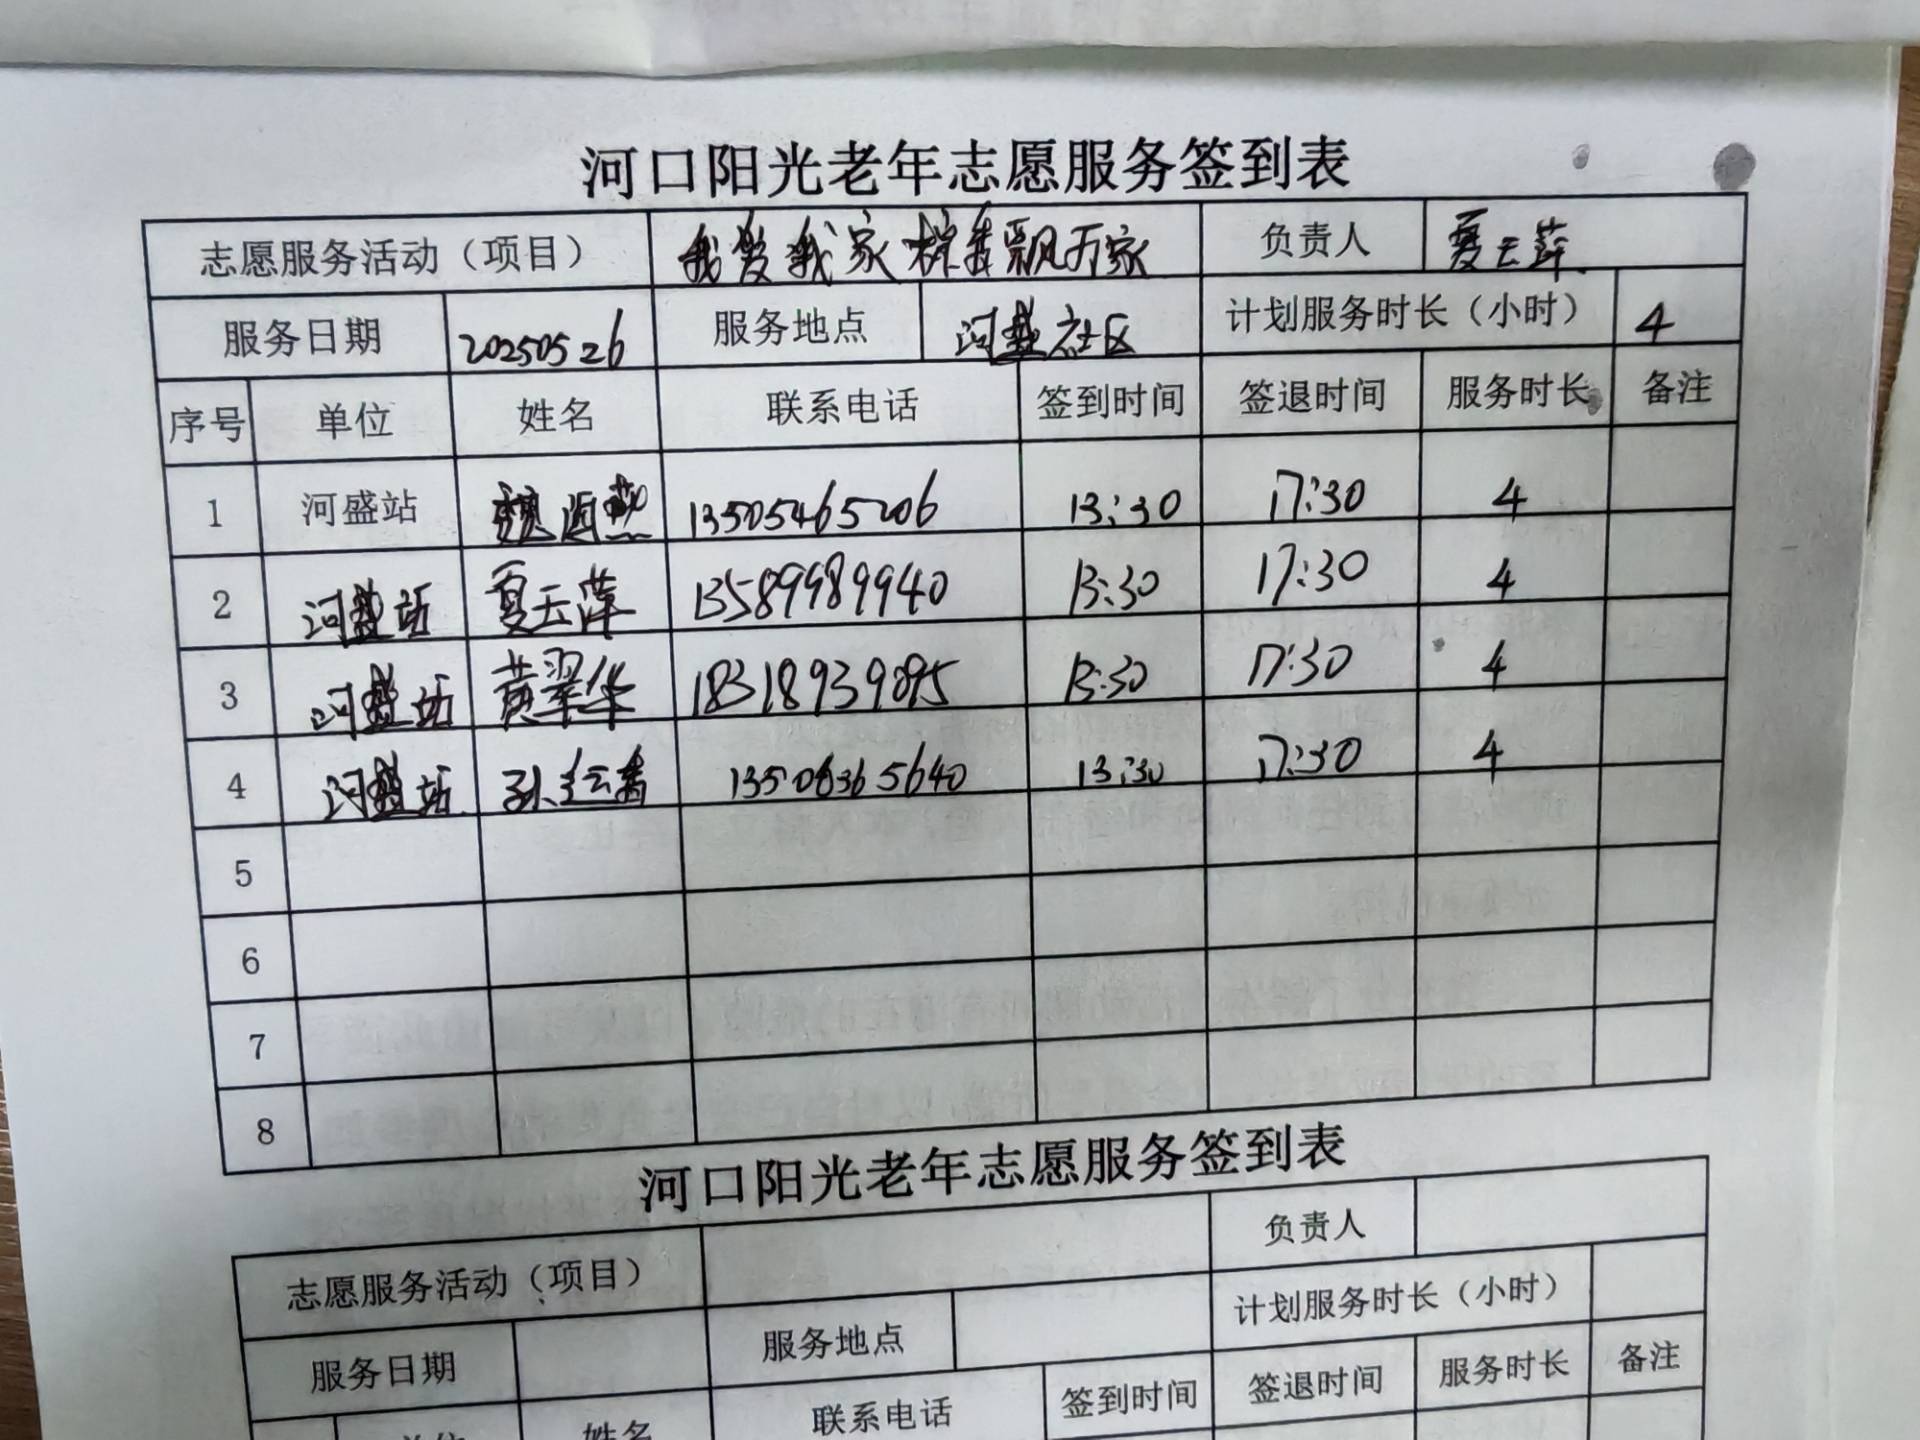 河口阳光老年志愿服务签到表
志愿服务活动（项目） 我爱我家 粽香飘万家 负责人 夏玉萍
服务日期 20250526 服务地点 河盛社区 计划服务时长（小时） 4
序号 单位 姓名 联系电话 签到时间 签退时间 服务时长 备注
1 河盛站 魏海燕 13505465206 13:30 17:30 4
2 河盛站 夏玉萍 13589989940 13:30 17:30 4
3 河盛站 黄翠华 18318939895 13:30 17:30 4
4 河盛站 孙 13506365640 13:30 17:30 4
5
6
7
8
河口阳光老年志愿服务签到表
志愿服务活动（项目） 负责人
服务日期 服务地点 计划服务时长（小时）
单位 姓名 联系电话 签到时间 签退时间 服务时长 备注